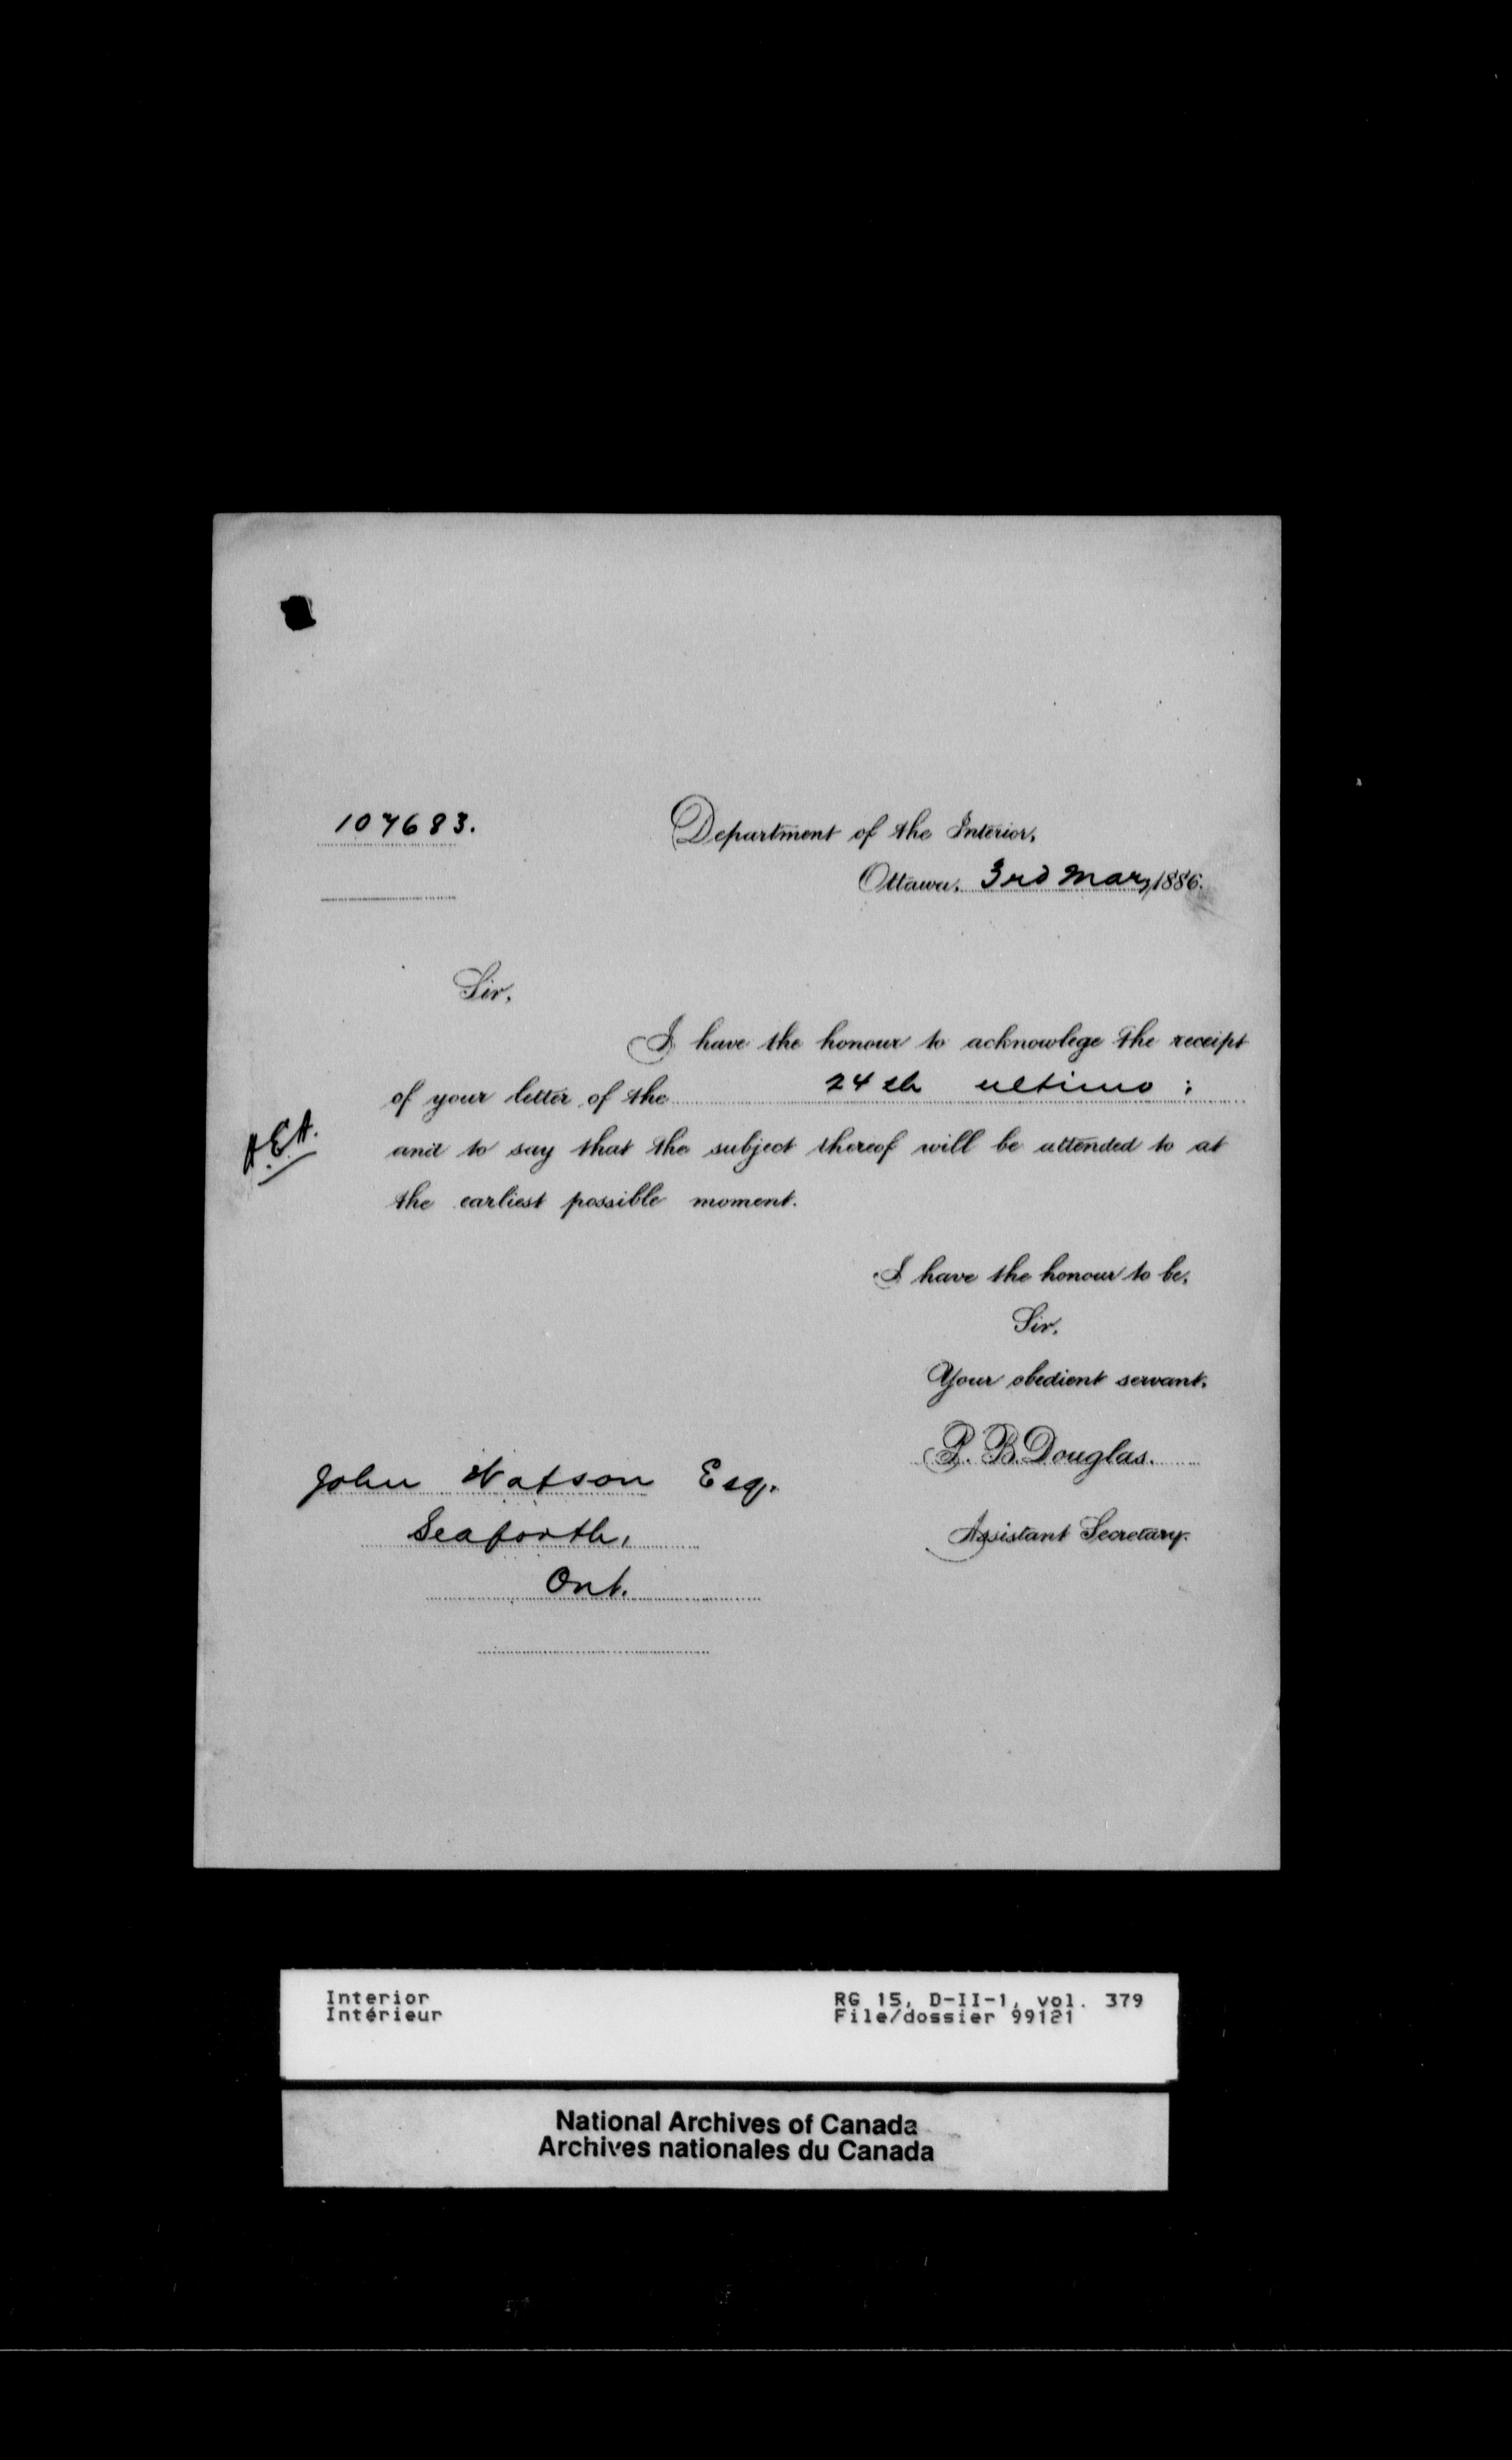 107683.
Department of the Interior,
Ottawa, 3rd Mar, 1886.
Sir,
I have the honour to acknowlege the receipt
of your letter of the 24th ultimo ;
and to say that the subject thereof will be attended to at
the earliest possible moment.
I have the honour to be,
Sir,
Your obedient servant,
P. B. Douglas.
Assistant Secretary.
John Watson Esq.
Seaforth,
Ont.
Interior
Intérieur
RG 15, D-II-1, vol. 379
File/dossier 99121
National Archives of Canada
Archives nationales du Canada